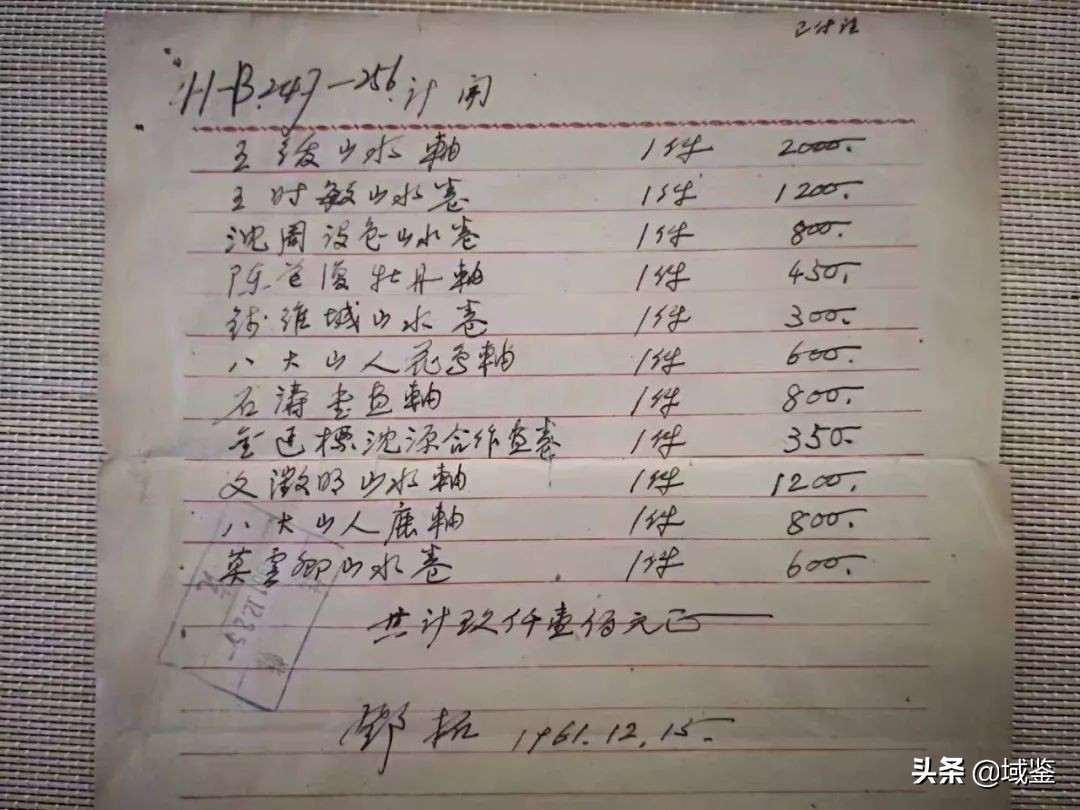 已付讫
H-B.247-256. 计开
王绂山水軸 1件 2000.
王时敏山水卷 1件 1200.
沈周设色山水卷 1件 800.
陈道復牡丹軸 1件 450.
钱维城山水卷 1件 300.
八大山人花鸟軸 1件 600.
石濤画軸 1件 800.
金廷標沈源合作画卷 1件 350.
文徵明山水軸 1件 1200.
八大山人鹿軸 1件 800.
莫雲卿山水卷 1件 600.
共计玖仟壹佰元正
鄧拓 1961.12.15.
头条 @域鉴